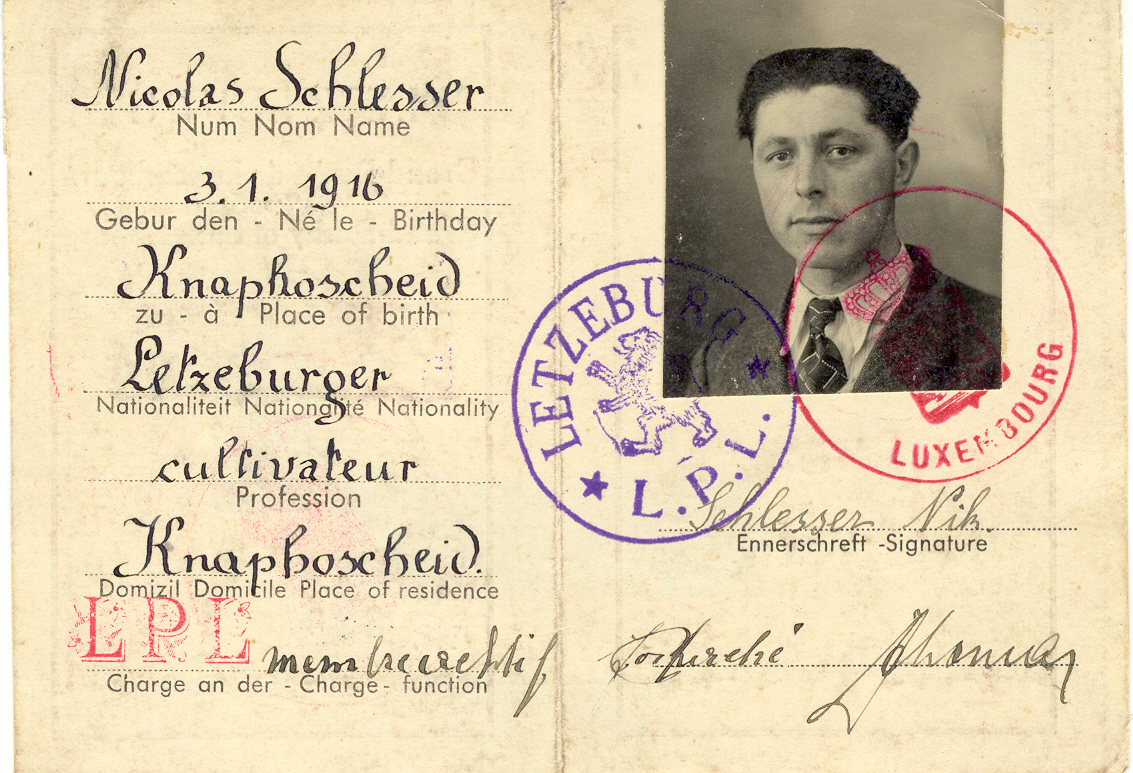 Nicolas Schlesser
Num Nom Name
3. 1. 1916
Gebur den - Né le - Birthday
Knaphoscheid
zu - à Place of birth
Letzeburger
Nationaliteit Nationalité Nationality
cultivateur
Profession
Knaphoscheid.
Domizil Domicile Place of residence
LPL membre actif
Charge an der - Charge - function
LETZEBURG
L.P.L.
LUXEMBOURG
Schlesser Nik.
Ennerschreft -Signature